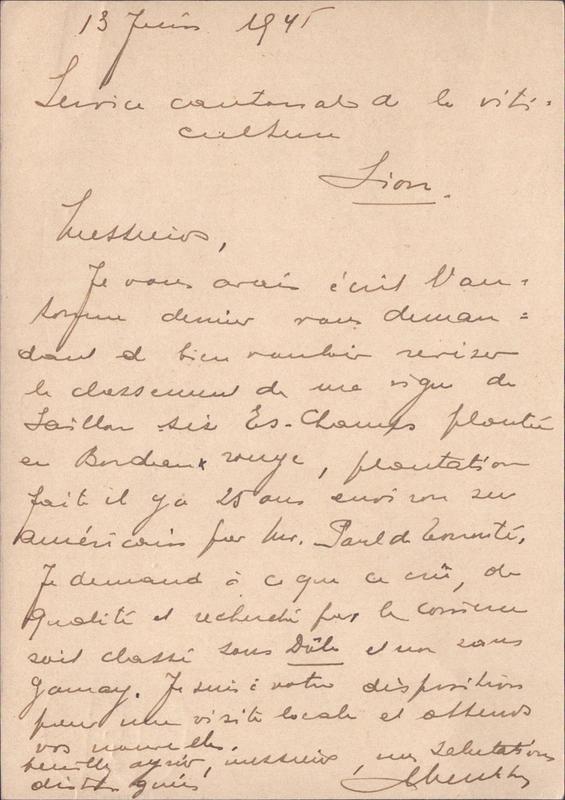 13 Juin 1945
Service cantonal de la viti-
culture
Sion.
Messieurs,
Je vous avais écrit l'au-
tomne dernier vous deman=
dant de bien vouloir reviser
le classement de ma vigne de
Saillon sis Es-Champs plantée
en Bordeaux rouge, plantation
faite il y a 25 ans environ sur
américains par Mr. Paul de
Je demande à ce que ce crû, de
qualité et recherché par le commerce
soit classé sous Dôle et non sous
gamay. Je suis à votre disposition
pour une visite locale et attends
vos nouvelles.
Veuillez agréer, messieurs, mes salutations
distinguées